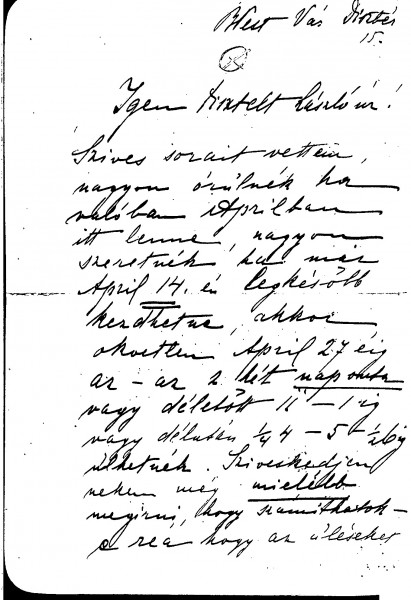 Igen tisztelt László úr!
Szives sorait vettem,
nagyon örülnék ha
valóban Aprilban
itt lenne, nagyon
szeretném, ha már
April 14. én legkésőbb
kezdhetne, akkor
okvetlen April 27 éig
az-az 2 hét naponta
vagy délelőtt 11-1 ig
vagy délután ¼4-5-½6ig
ülhetnék. Sziveskedjen
nekem még mielébb
megirni, hogy számíthatok-
e rea hogy az üléseket